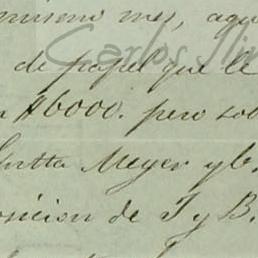 mismo mes, aqu
Carlos
de papel que le
$6000. pero sob
Meyer y C.
sicion de T y B.